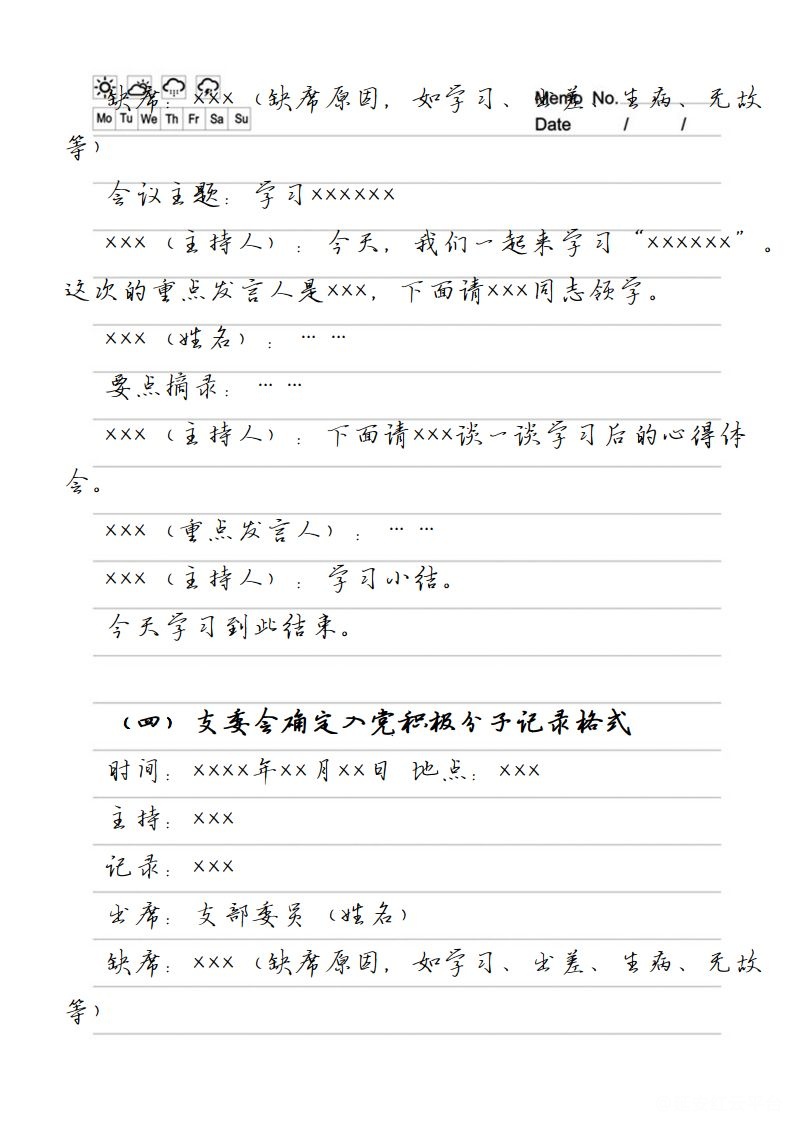 缺席：×××（缺席原因，如学习、出差、生病、无故
Memo No.
Mo Tu We Th Fr Sa Su
Date / /
等）
会议主题：学习××××××
×××（主持人）：今天，我们一起来学习“××××××”。
这次的重点发言人是×××，下面请×××同志领学。
×××（姓名）：… …
要点摘录：… …
×××（主持人）：下面请×××谈一谈学习后的心得体
会。
×××（重点发言人）：… …
×××（主持人）：学习小结。
今天学习到此结束。
（四）支委会确定入党积极分子记录格式
时间：××××年××月××日 地点：×××
主持：×××
记录：×××
出席：支部委员（姓名）
缺席：×××（缺席原因，如学习、出差、生病、无故
等）